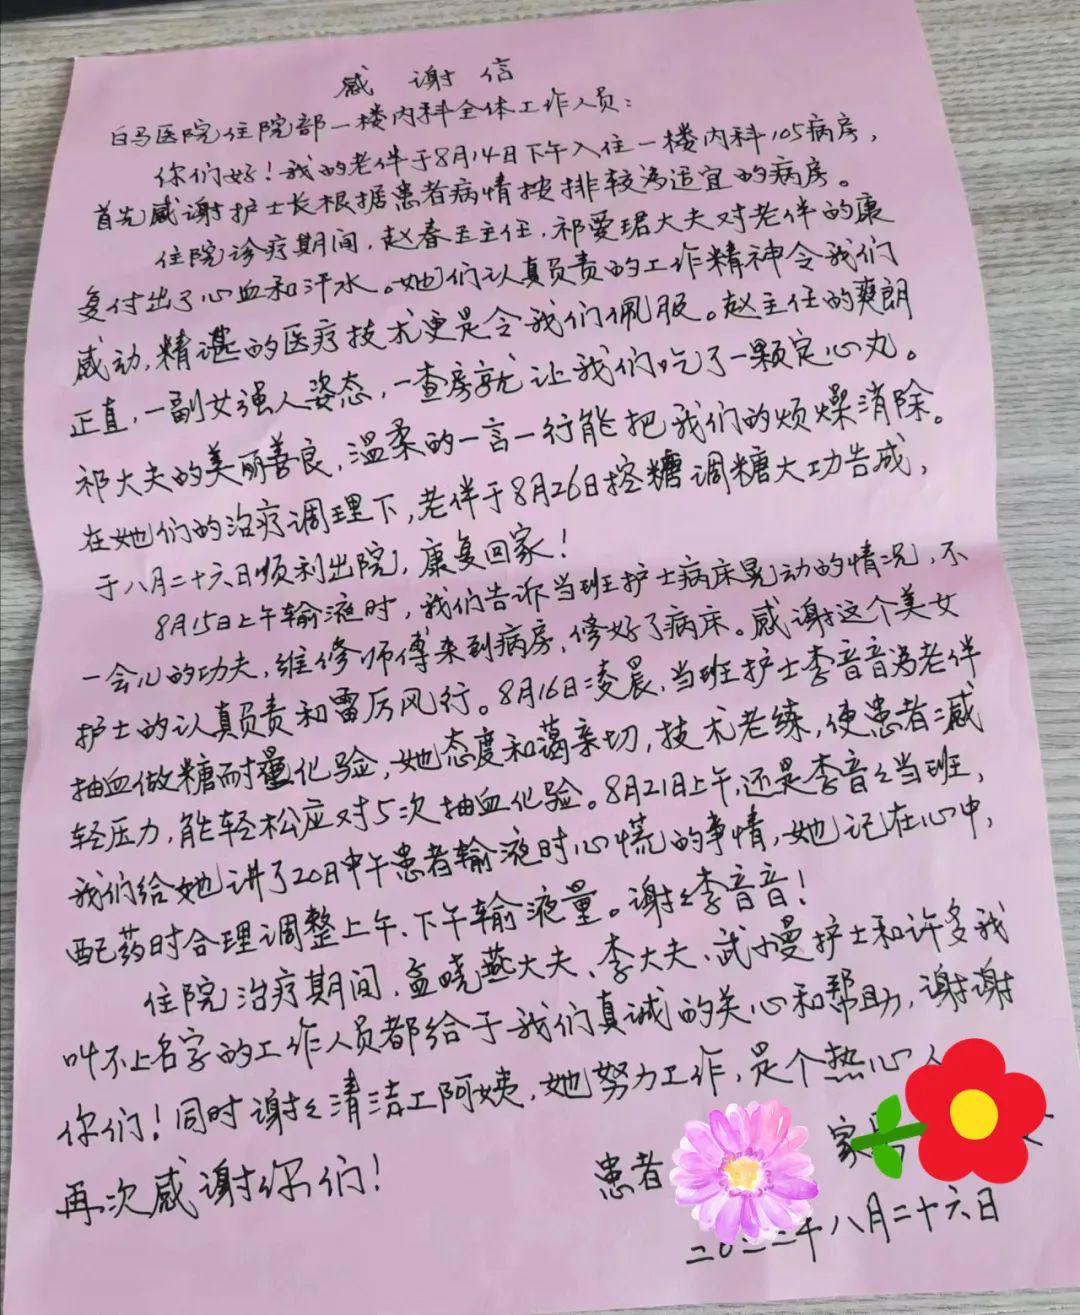 感谢信
白马医院住院部一楼内科全体工作人员：
你们好！我的老伴于8月14日下午入住一楼内科105病房，
首先感谢护士长根据患者病情按排较为适宜的病房。
住院诊疗期间，赵春玉主任，祁爱珺大夫对老伴的康
复付出了心血和汗水。她们认真负责的工作精神令我们
感动，精谌的医疗技术更是令我们佩服。赵主任的爽朗
正直，一副女强人姿态，一查房就让我们吃了一颗定心丸。
祁大夫的美丽善良，温柔的一言一行能把我们的烦燥消除。
在她们的治疗调理下，老伴于8月26日控糖调糖大功告成，
于八月二十六日顺利出院，康复回家！
8月15日上午输液时，我们告诉当班护士病床晃动的情况，不
一会儿的功夫，维修师傅来到病房，修好了病床。感谢这个美女
护士的认真负责和雷厉风行。8月16日凌晨，当班护士李音音为老伴
抽血做糖耐量化验，她态度和蔼亲切，技术老练，使患者减
轻压力，能轻松应对5次抽血化验。8月21日上午，还是李音々当班，
我们给她讲了20日中午患者输液时心慌的事情，她记在心中，
配药时合理调整上午、下午输液量。谢々李音音！
住院治疗期间，孟晓燕大夫、李大夫、武小曼护士和许多我
叫不上名字的工作人员都给于我们真诚的关心和帮助，谢谢
你们！同时谢々清洁工阿姨，她努力工作，是个热心人
再次感谢你们！
患者 家属
二〇二二年八月二十六日